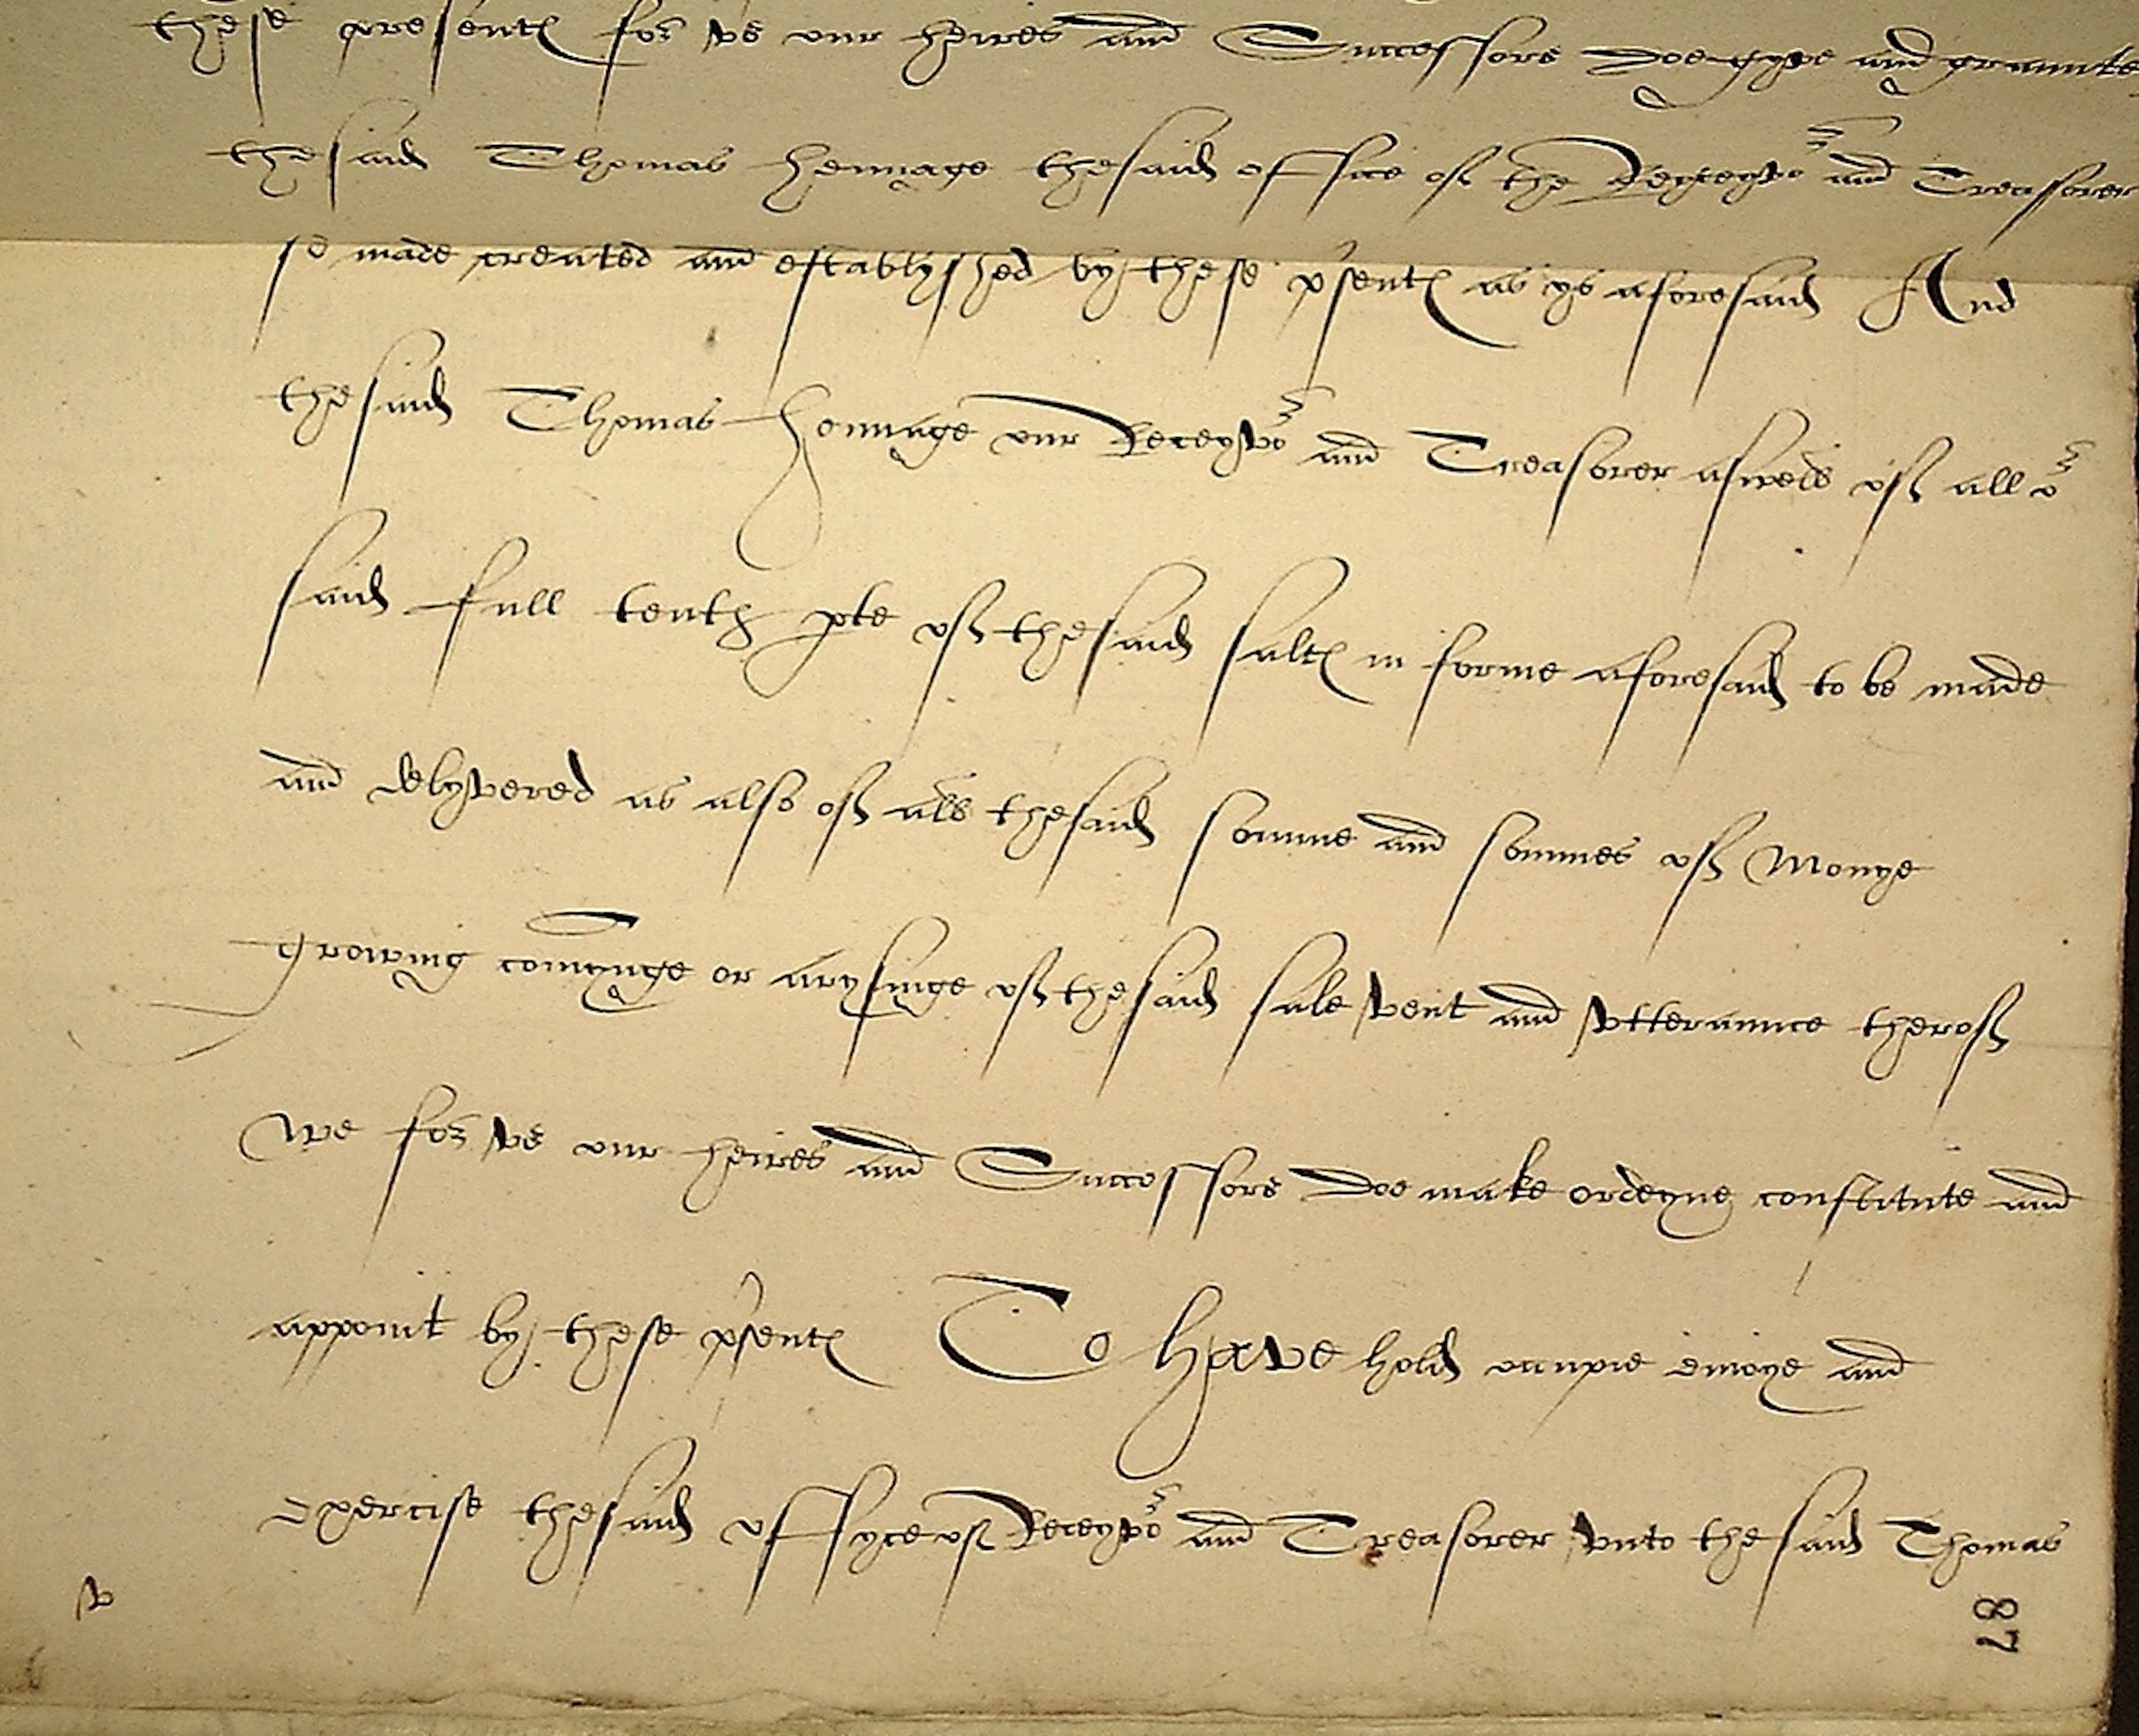 these presentℓ for vs our heires and Successors Doe gyve and graunte
the said Thomas Hennage the said office of the Receyvor and Treasorer
so made created and establyshed by these p'sentℓ as ys aforesaid And
the said Thomas Hennage our Receyvor and Treasorer aswell of all or
said full tenth pte of the said saltℓ in forme aforesaid to be made
and delyvered as also of all the said somme and sommes of Monye
growing comynge or arysinge of the said sale vent and vtteraunce therof
We for vs our heires and Successors Doe make ordeyne constitute and
appoint by these p'sentℓ To Have hold occupie enioye and
exercise the said offyce of Receyvor and Treasorer vnto the said Thomas
87